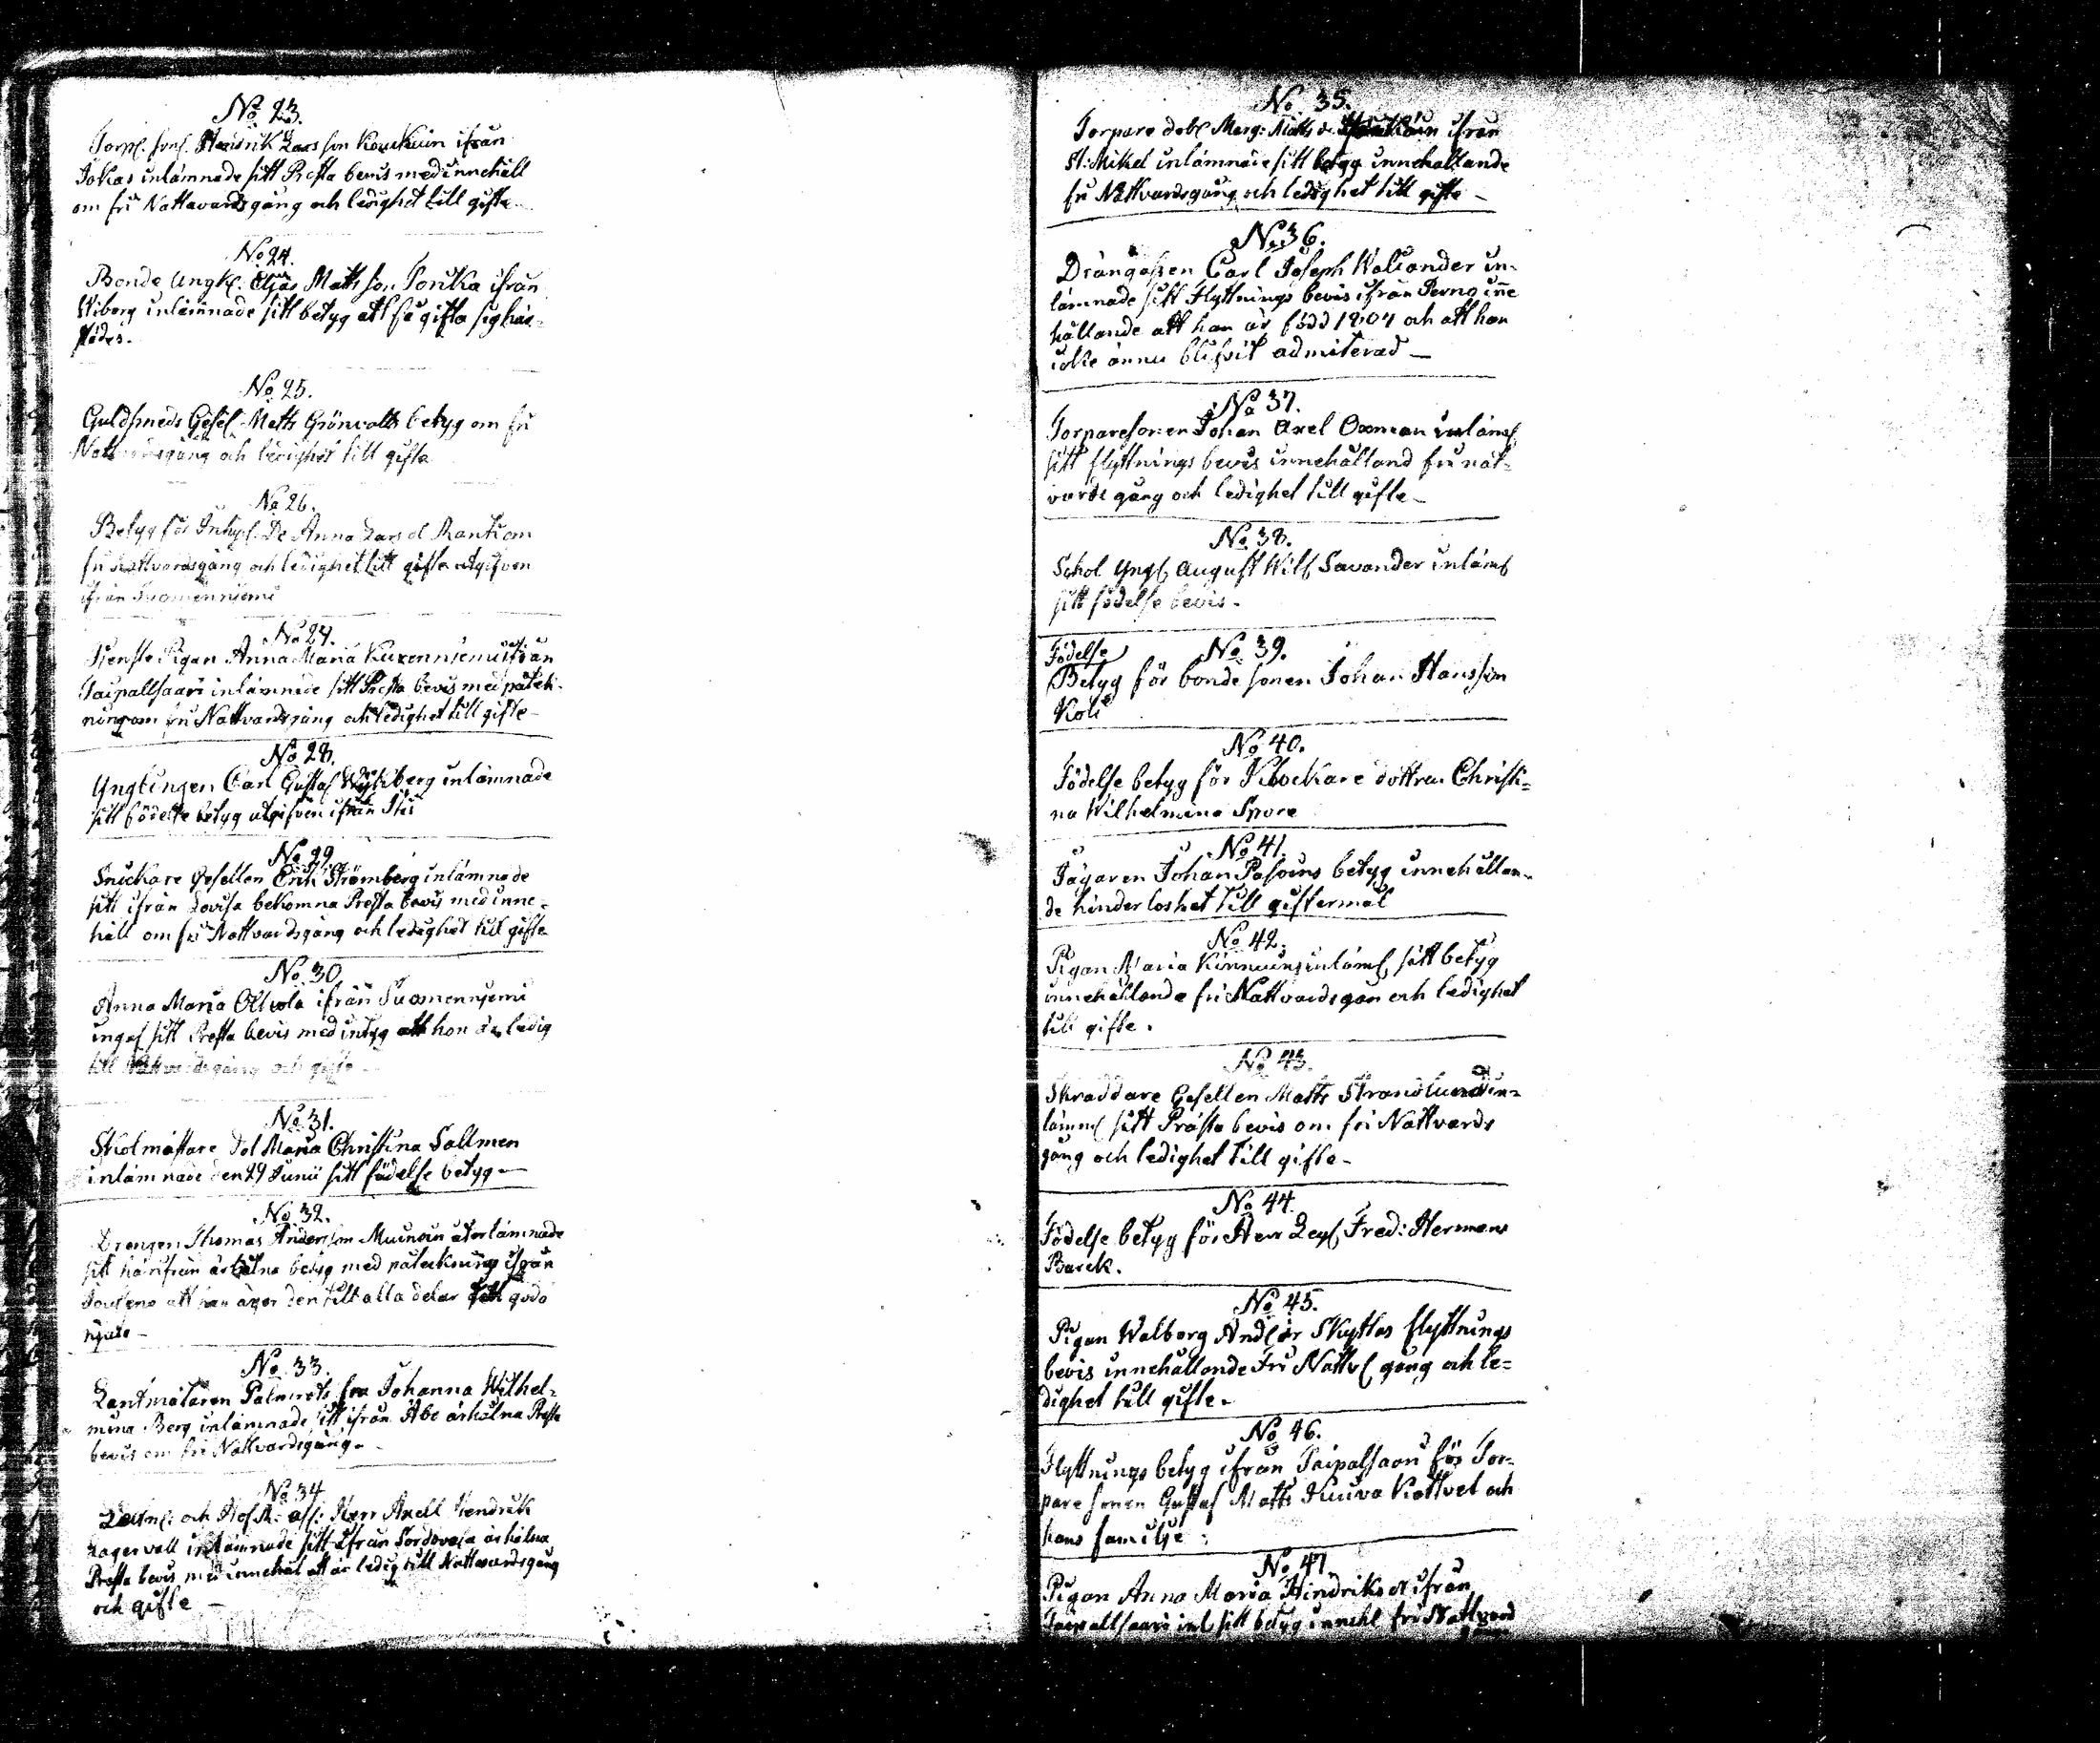 No 23.
Torp. son. Hendrik Larsson Koukuin ifrån
Jokas inlämnade sitt Presta bevis med innehåll
om fri Nattavardsgång och ledighet till gifte
No 24.
Bonde Ungk. Elias Mattsson Tonka ifrån
Wiborg inlämnade sitt betyg att få gifta sig här-
städes.
No 25.
Guldsmeds Gesel. Matts Grönvalls betyg om fri
Nattvardsgång och ledighet till gifte
No 26.
Betyg för Inhys. De Anna Lars d. Ranti om
fri Nattvardsgång och ledighet till gifte utgifven
ifrån Suomenniemi
No 27.
Tjenste Pigan Anna Maria Kurenniemi ifrån
Taipallsaari inlämnade sitt Presta bevis med påtek-
ning om fri Nattvardsgång och ledighet till gifte
No 28.
Ynglingen Carl Gustaf Wykberg inlämnade
sitt födelse betyg utgifven ifrån
No 29.
Snickare Gesellen Erik Strömberg inlämnade
sitt ifrån Lovisa bekomna Presta bevis med inne-
håll om fri Nattvardsgång och ledighet till gifte
No 30.
Anna Maria Ollvola ifrån Suomenniemi
ingaf sitt Presta bevis med intyg att hon är ledig
till Nattvardsgång och gifte
No 31.
Skolmästare Dot Maria Christina Sallmen
inlämnade den 29 Junii sitt födelse betyg —
No 32.
Drengen Thomas Andersson Muinoin återlämnade
sitt härifrån ärhålna betyg med påteckning ifrån
Joutseno att han äger den till alla delar till godo
njuta —
No 33.
Lantmätaren Palmrots fru Johanna Wilhel-
mina Berg inlämnade sitt ifrån Åbo ärhålna Presta
bevis om fri Nattvardsgång.
No 34
och Hof R: ass: Herr Axell Hendrik
Lagervall inlämnade sitt ifrån Sordavala ärhålna
Presta bevis med innehål att är ledig till Nattvardsgång
och gifte —
No 35.
Torpare dot. Marg: Matts d. ifrån
St: Mikel inlämnade sitt betyg innehållande
fri Nattvardsgång och ledighet till gifte —
No 36.
Drängossen Carl Joseph Walander in-
lämnade sitt Flyttnings bevis ifrån Perno inne
hållande att han är född 1804 och att han
icke ännu blifvit admiterad —
No 37.
Torparesonen Johan Axel Oxman inläm.
sitt flyttnings bevis innehålland fri nat-
vards gång och ledighet till gifte —
No 38.
Schol Yngl. August Wilh. Savander inläm.
sitt födelse bevis.
No 39.
Födelse
Betyg för bonde sonen Johan Hansson
Koli
No 40.
Födelse betyg för Klockare dottren Christi-
na Wilhelmina Spore
No 41.
Jägaren Johan Pasoins betyg innehållan-
de hinderloshet till giftermål
No 42.
Pigan Maria Kinnuins inläm. sitt betyg
innehållande fri Nattvardsgan och ledighet
till gifte.
No 43.
Skraddare Gesellen Matts Strandlund in-
lämn. sitt Prästa bevis om fri Nattvards
gång och ledighet till gifte —
No 44.
Födelse betyg för Herr Fred: Hermans
Barck.
No 45.
Pigan Walborg And. dr Skyttas flyttnings
bevis innehållande Fri Nattv. gång och le-
dighet till gifte.
No 46.
Flyttnings betyg ifrån Taipalsaari för Tor-
pare sonen Gustaf Matts. Kuiva Kattvel och
hans familje
No 47
Pigan Anna Maria Hindriks d. ifrån
Taipallsaari inl. sitt betyg innehl fri Nattvard